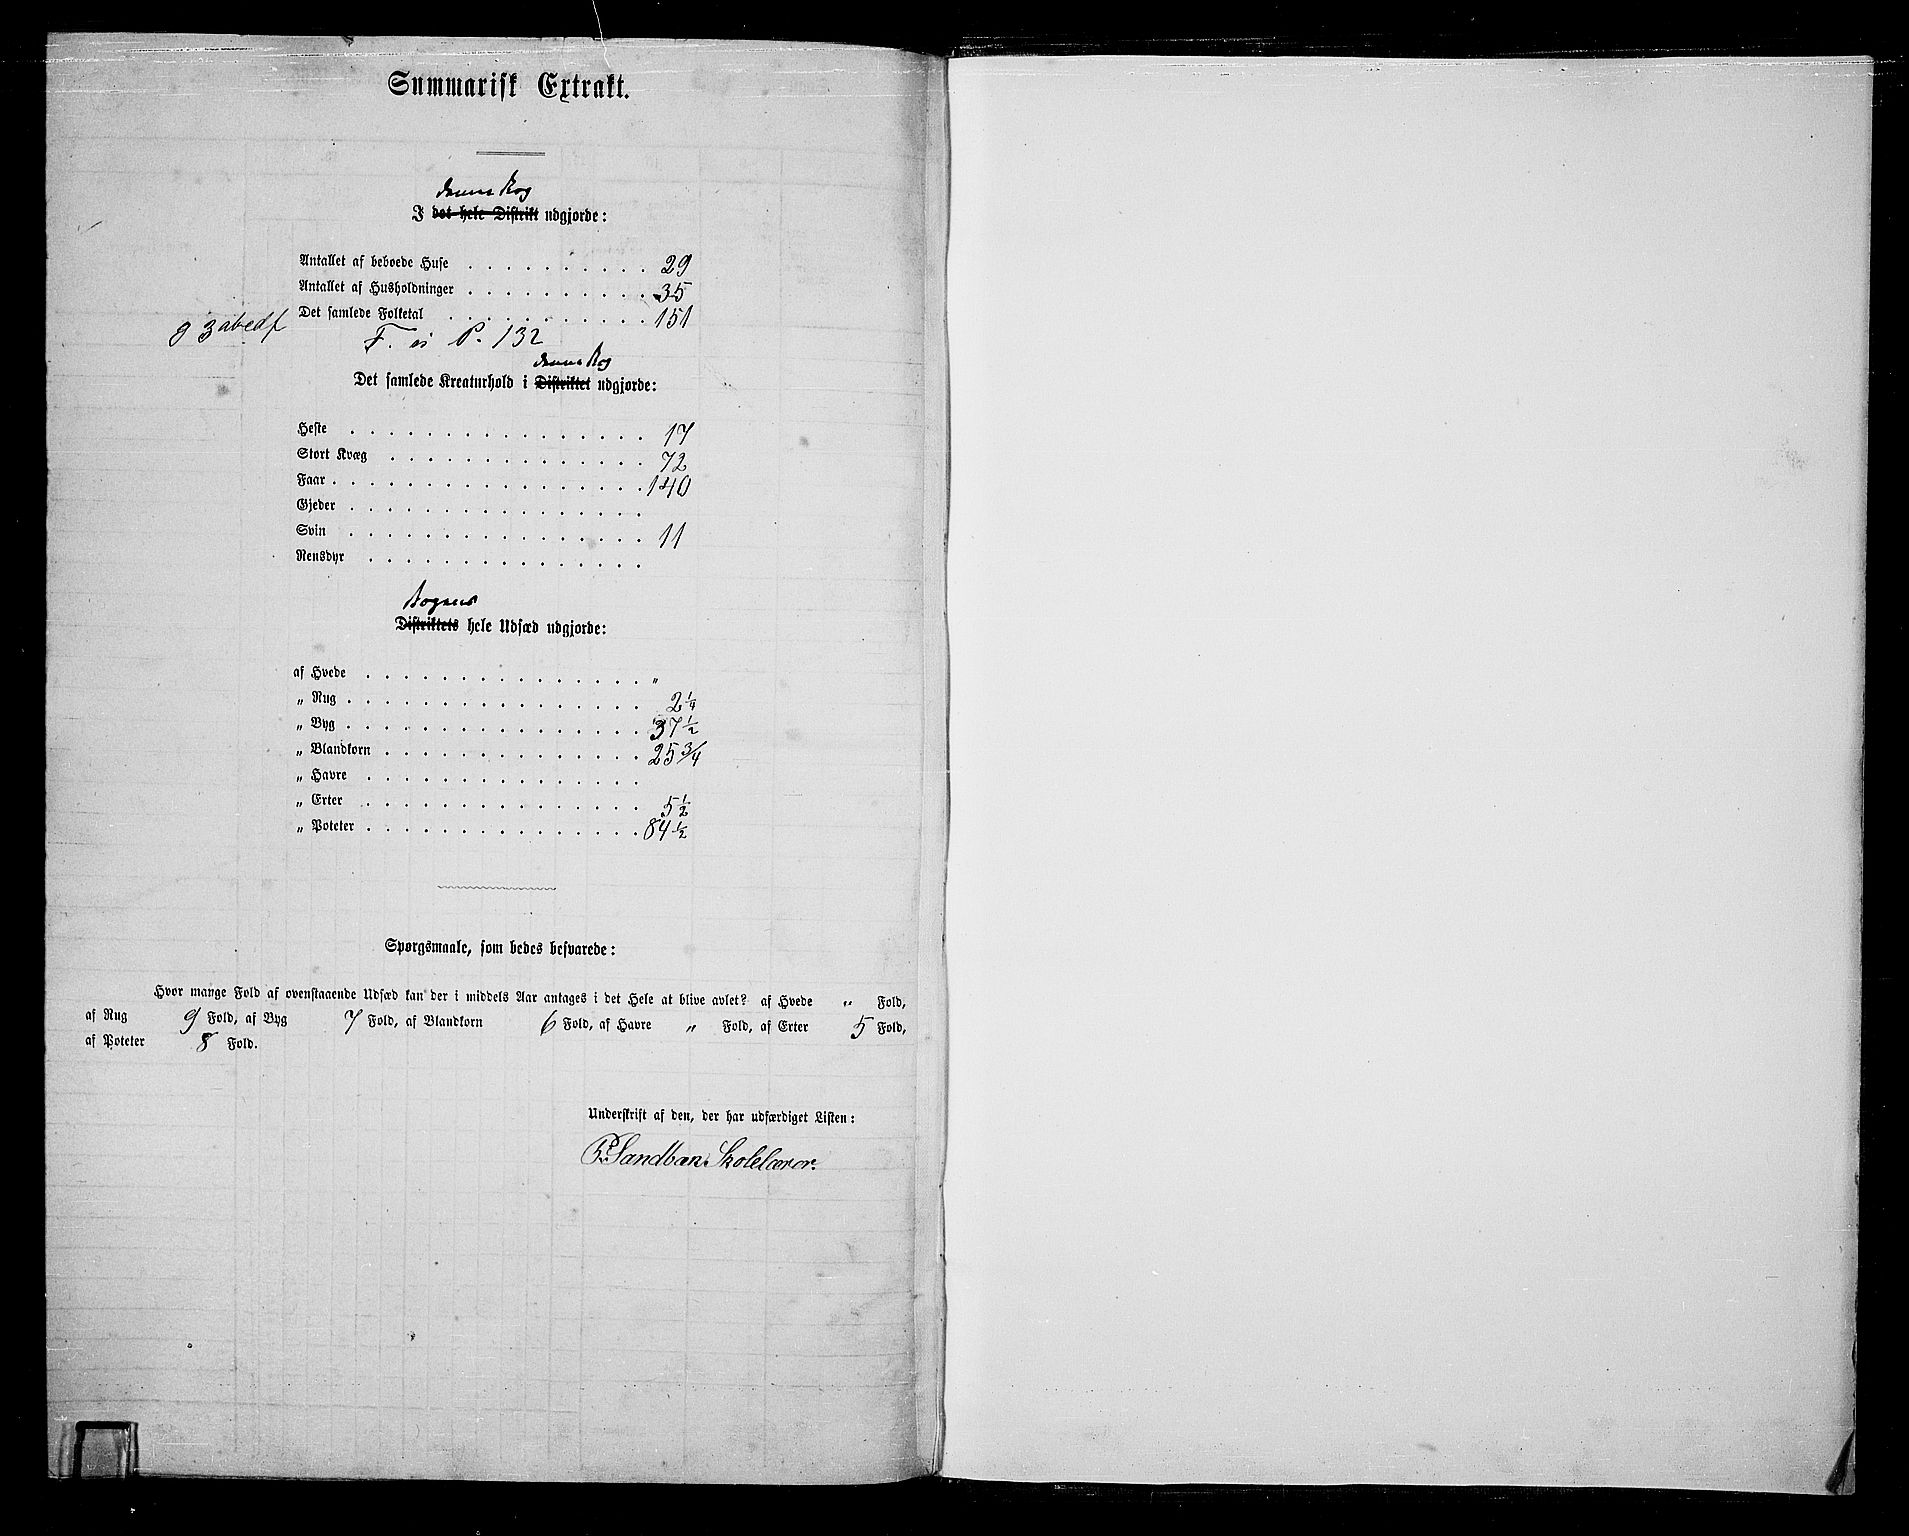 Summarisk Extrakt.
denne Bog
I det hele Distrikt udgjorde:
Antallet af beboede Huse . . . . . . . . . . 29
Antallet af Husholdninger . . . . . . . . . . 35
Det samlede Folketal . . . . . . . . . . . 151
F. P. 132
denne Bog
Det samlede Kreaturhold i Distriktet udgjorde:
Heste . . . . . . . . . . . . . . . . 17
Stort Kvæg . . . . . . . . . . . . . . 72
Faar . . . . . . . . . . . . . . . . . 140
Gjeder . . . . . . . . . . . . . . . .
Svin . . . . . . . . . . . . . . . . 11
Rensdyr . . . . . . . . . . . . . . .
Bogens
Distriktets hele Udsæd udgjorde:
af Hvede . . . . . . . . . . . . . . . "
„ Rug . . . . . . . . . . . . . . . . 2 1/4
„ Byg . . . . . . . . . . . . . . . . 37 1/2
„ Blandkorn . . . . . . . . . . . . . . 25 3/4
„ Havre . . . . . . . . . . . . . . .
„ Erter . . . . . . . . . . . . . . . 5 1/2
„ Poteter . . . . . . . . . . . . . . . 84 1/2
Spørgsmaale, som bedes besvarede:
Hvor mange Fold af ovenstaaende Udsæd kan der i middels Aar antages i det Hele at blive avlet? af Hvede " Fold,
af Rug 9 Fold, af Byg 7 Fold, af Blandkorn 6 Fold, af Havre " Fold, af Erter 5 Fold,
af Poteter 8 Fold.
Underskrift af den, der har udfærdiget Listen:
P. Sandbæn. Skolelærer.